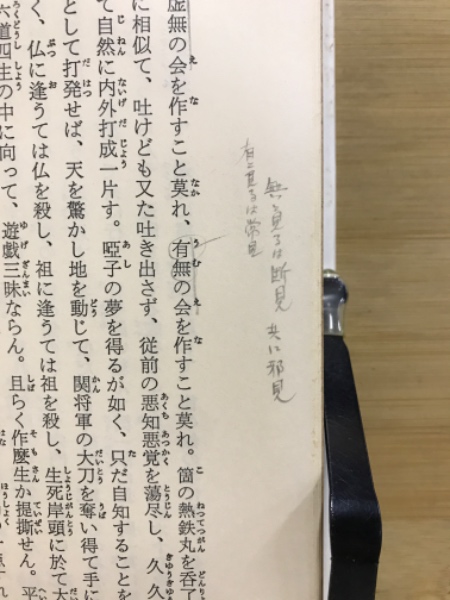 無と見るは断見 共に邪見
有と見るは常見
虚無の会を作すこと莫れ、有無の会を作すこと莫れ。箇の熱鉄丸を呑了
に相似て、吐けども又た吐き出さず、従前の悪知悪覚を蕩尽し、久久
て自然に内外打成一片す。啞子の夢を得るが如く、只だ自知することを
として打発せば、天を驚かし地を動じて、関将軍の大刀を奪い得て手に
く、仏に逢うては仏を殺し、祖に逢うては祖を殺し、生死岸頭に於て大
六道四生の中に向って、遊戯三昧ならん。且らく作麼生か提撕せん。平